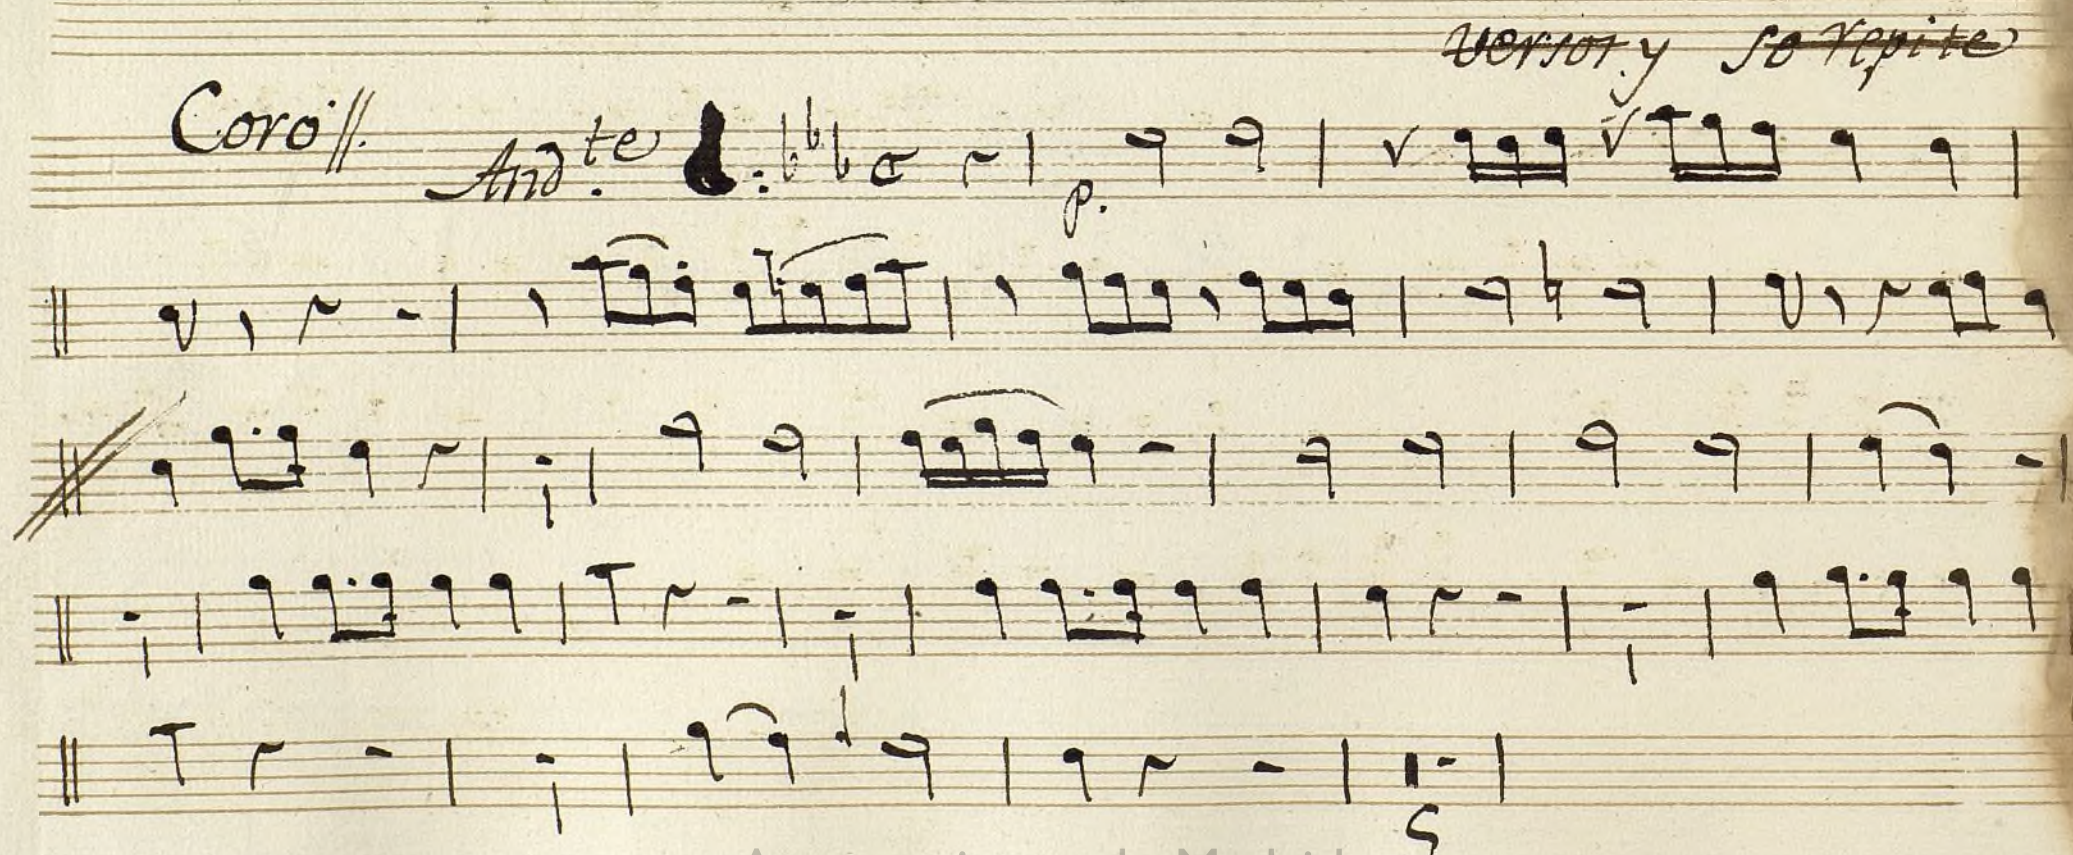 versos y se repite
Coro //.
And.te
p.
1
1
1
1
1